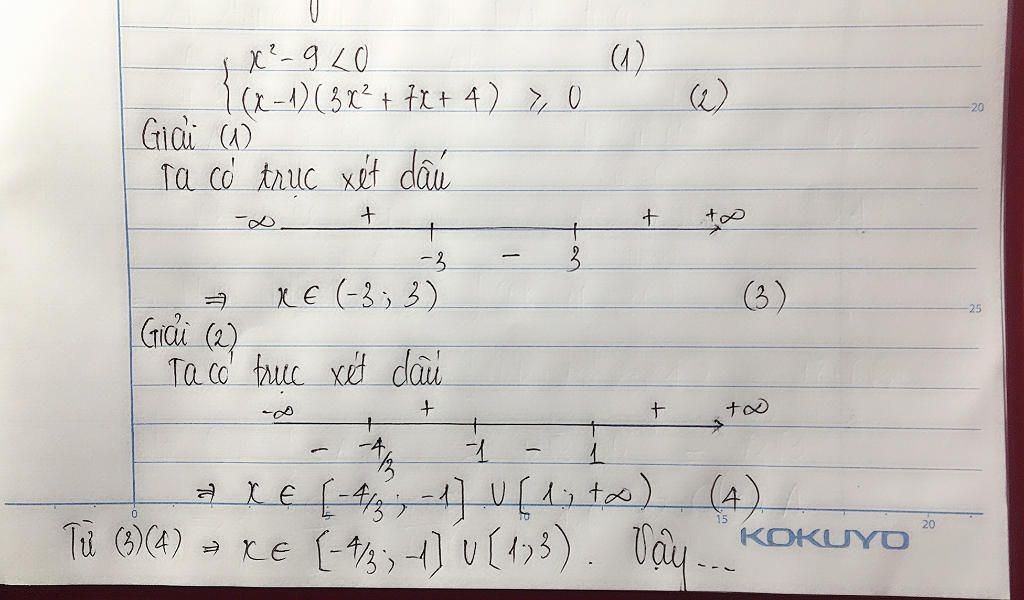 { x² - 9 < 0 (1)
(x-1)(3x² + 7x + 4) ⩾ 0 (2)
20
Giải (1)
Ta có trục xét dấu
-∞ + + +∞
-3 - 3
⇒ x ∈ (-3; 3) (3)
25
Giải (2)
Ta có trục xét dấu
-∞ + + +∞
- -4/3 -1 - 1
⇒ x ∈ [-4/3; -1] ∪ [1; +∞) (4)
0 5 10 15 20
Từ (3)(4) ⇒ x ∈ [-4/3; -1] ∪ [1;3). Vậy...
KOKUYO